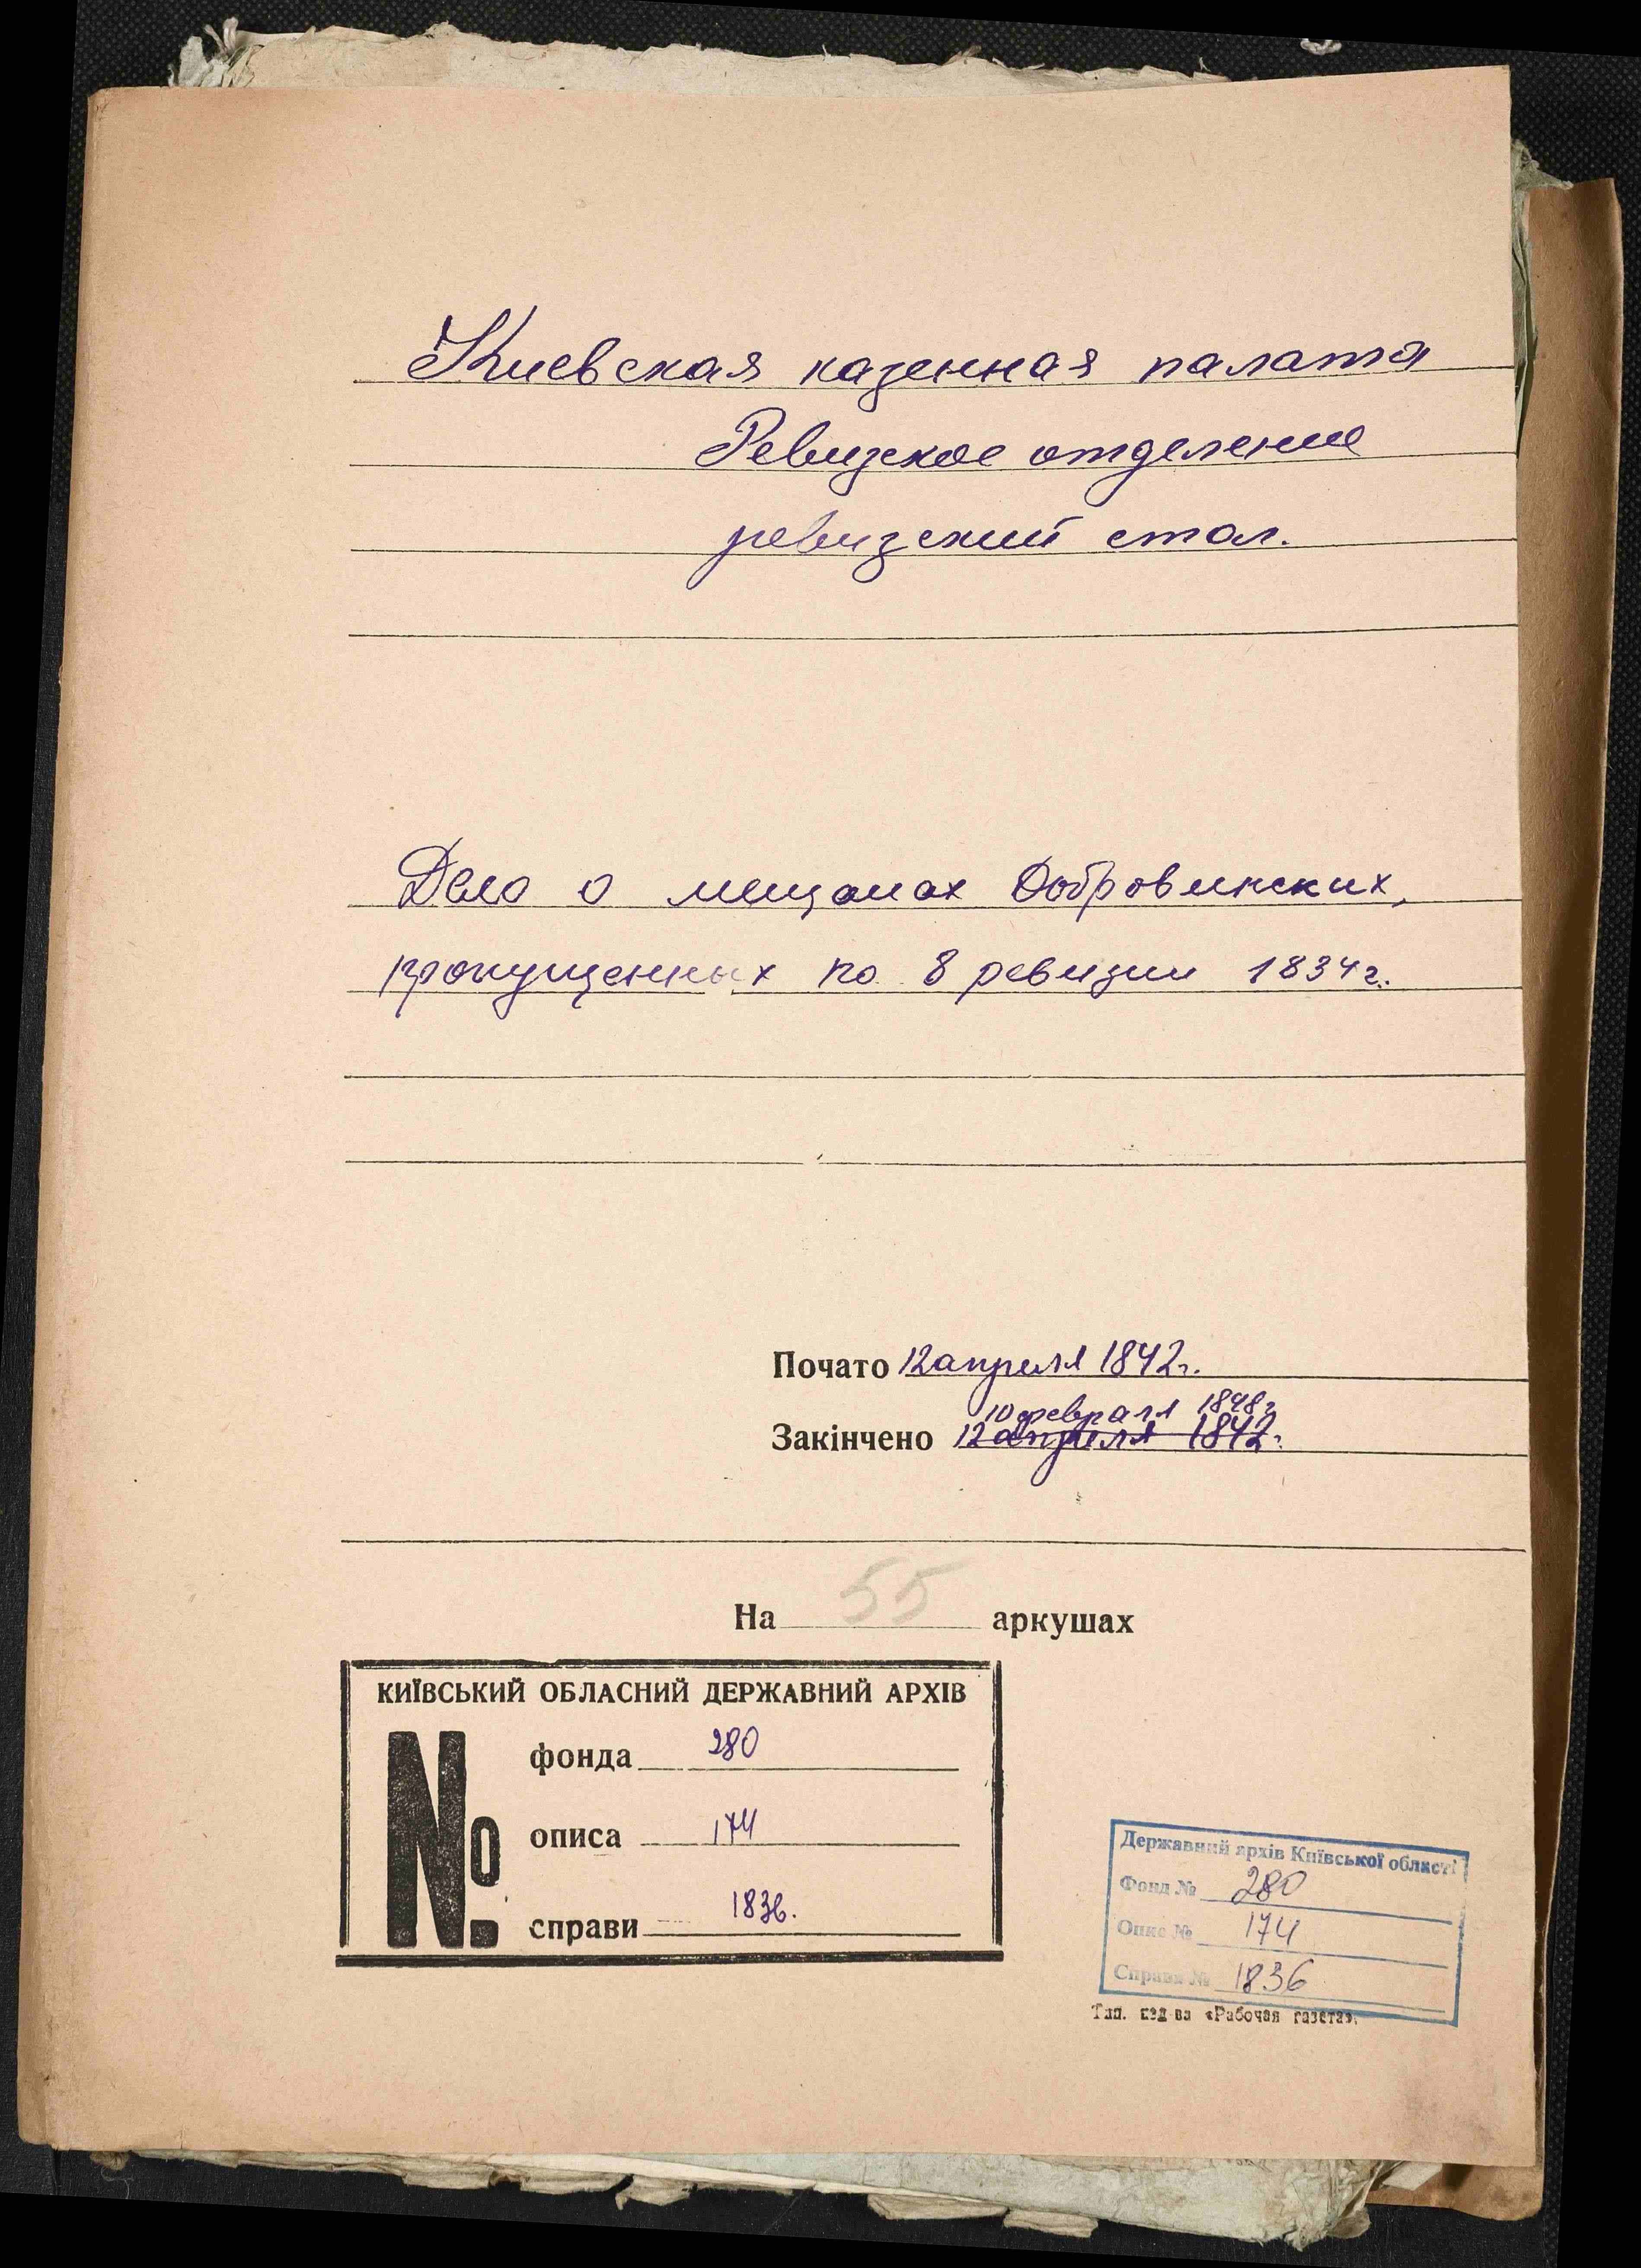 Киевская казенная палата
Ревизское отделение
ревизский стол.
Дело о мещанах Добровинских,
пропущенных по 8 ревизии 1834 г.
Почато 12 апреля 1842 г.
10 февраля 1848 г.
Закінчено 12 апреля 1842 г.
На 55 аркушах
КИЇВСЬКИЙ ОБЛАСНИЙ ДЕРЖАВНИЙ АРХІВ
№
фонда 280
описа 174
справи 1836.
Державний архів Київської області
Фонд № 280
Опис № 174
Справа № 1836
Тип. изд-ва «Рабочая газета».